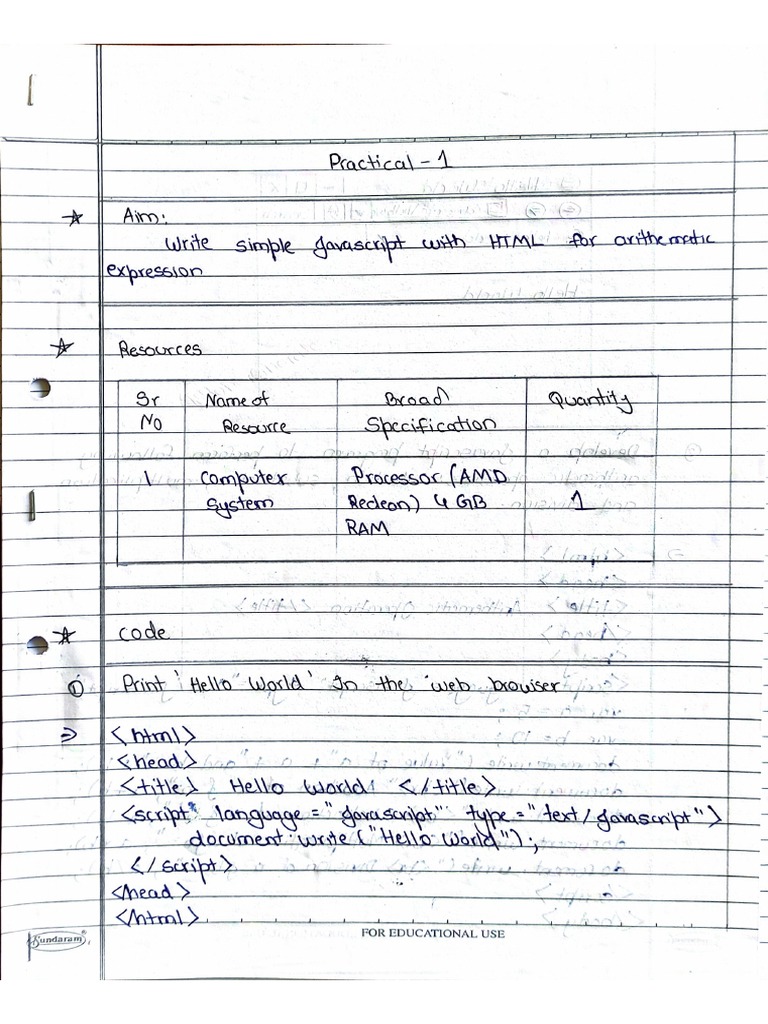 Practical - 1
Aim:
Write simple Javascript with HTML for arithematic
expression
Resources
Sr No | Name of Resource | Broad Specification | Quantity
1 | Computer System | Processor (AMD Redeon) 4 GB RAM | 1
code
① Print 'Hello World' In the web browiser
⇒ <html>
<head>
<title> Hello World </title>
<script language = "Javascript" type = "text/Javascript">
document.write ("Hello World");
</script>
</head>
</html>
Sundaram
FOR EDUCATIONAL USE